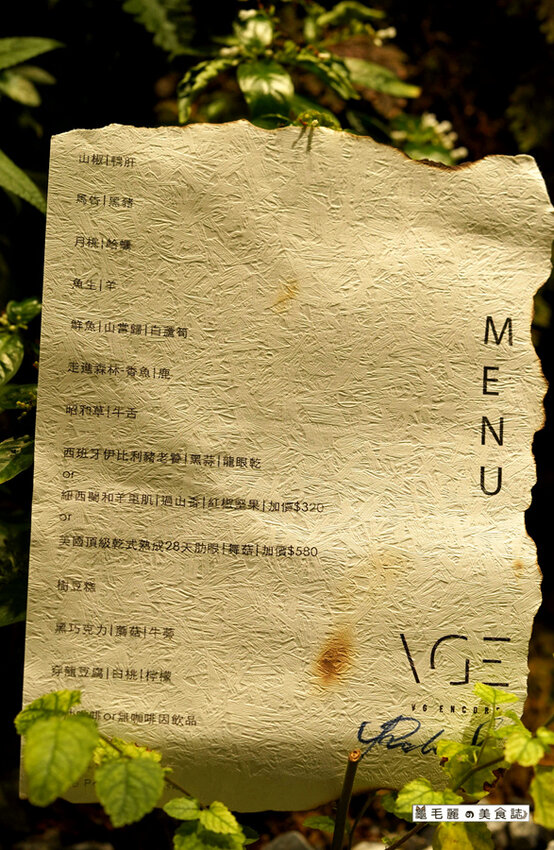 山椒|鴨肝
馬告|黑豬
月桃|蛤蠣
魚生|羊
鮮魚|山當歸|白蘆筍
走進森林-香魚|鹿
昭和草|牛舌
西班牙伊比利豬老饕|黑蒜|龍眼乾
or
紐西蘭和羊里肌|過山香|紅椒堅果|加價$320
or
美國頂級乾式熟成28天肋眼|舞菇|加價$580
樹豆糕
黑巧克力|蘑菇|牛蒡
穿龍豆腐|白桃|檸檬
咖啡or無咖啡因飲品
MENU
VGE
VG ENCORE
毛麗の美食誌